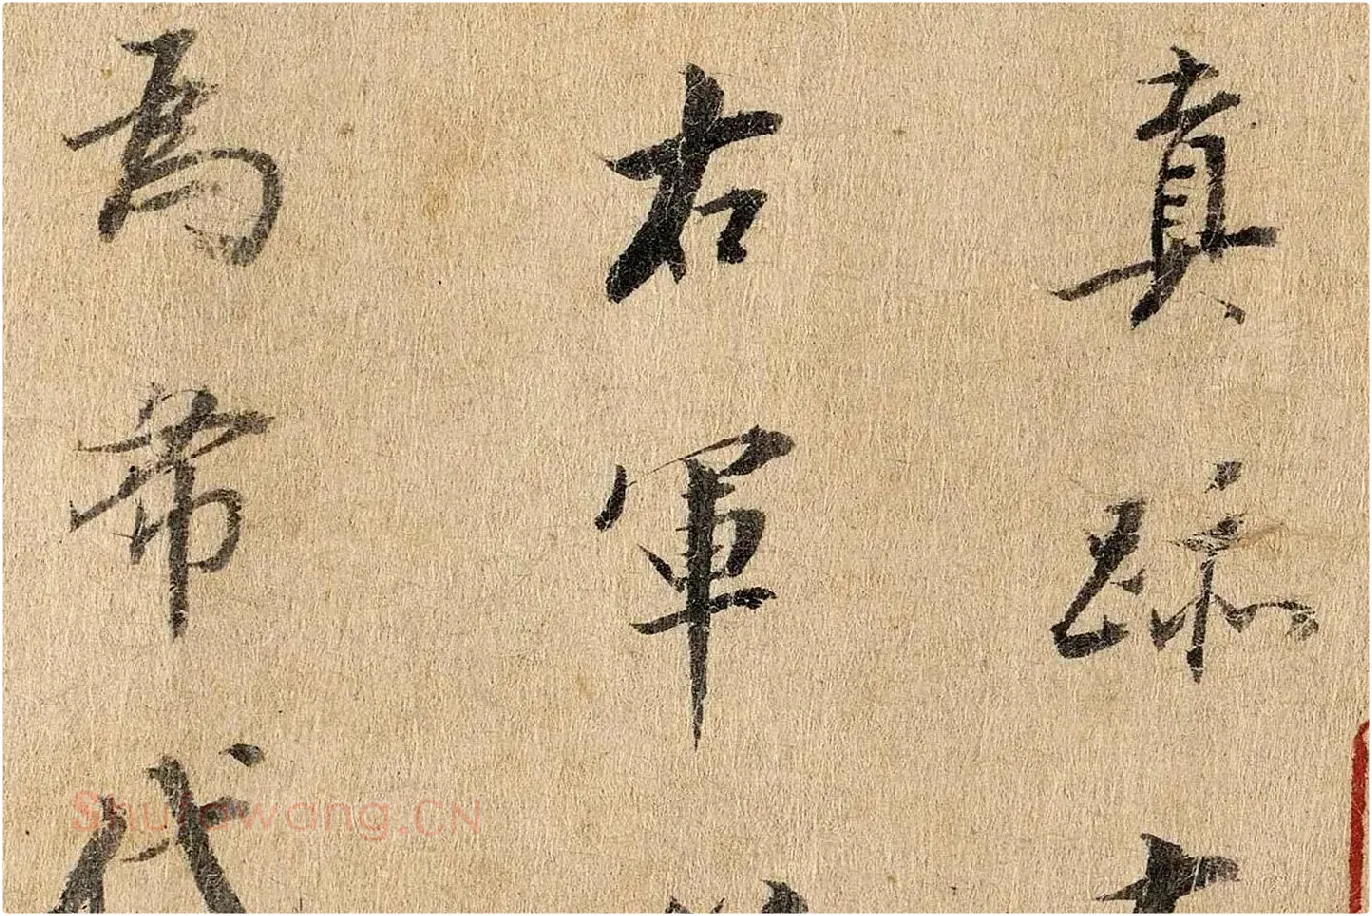 真跡
右軍
焉希代
Shufawang.CN